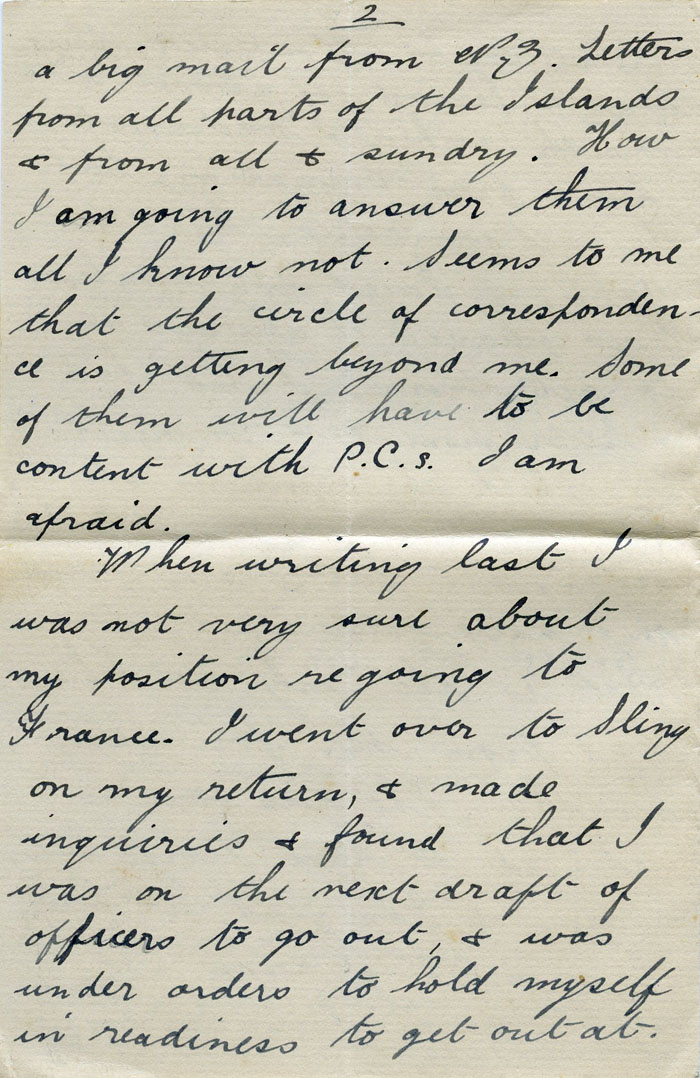 2
a big mail from N.Z. Letters
from all parts of the Islands
& from all & sundry. How
I am going to answer them
all I know not. Seems to me
that the circle of corresponden-
ce is getting beyond me. Some
of them will have to be
content with P.C.s. I am
afraid.
When writing last I
was not very sure about
my position re going to
France. I went over to Sling
on my return, & made
inquiries & found that I
was on the next draft of
officers to go out, & was
under orders to hold myself
in readiness to get out at.